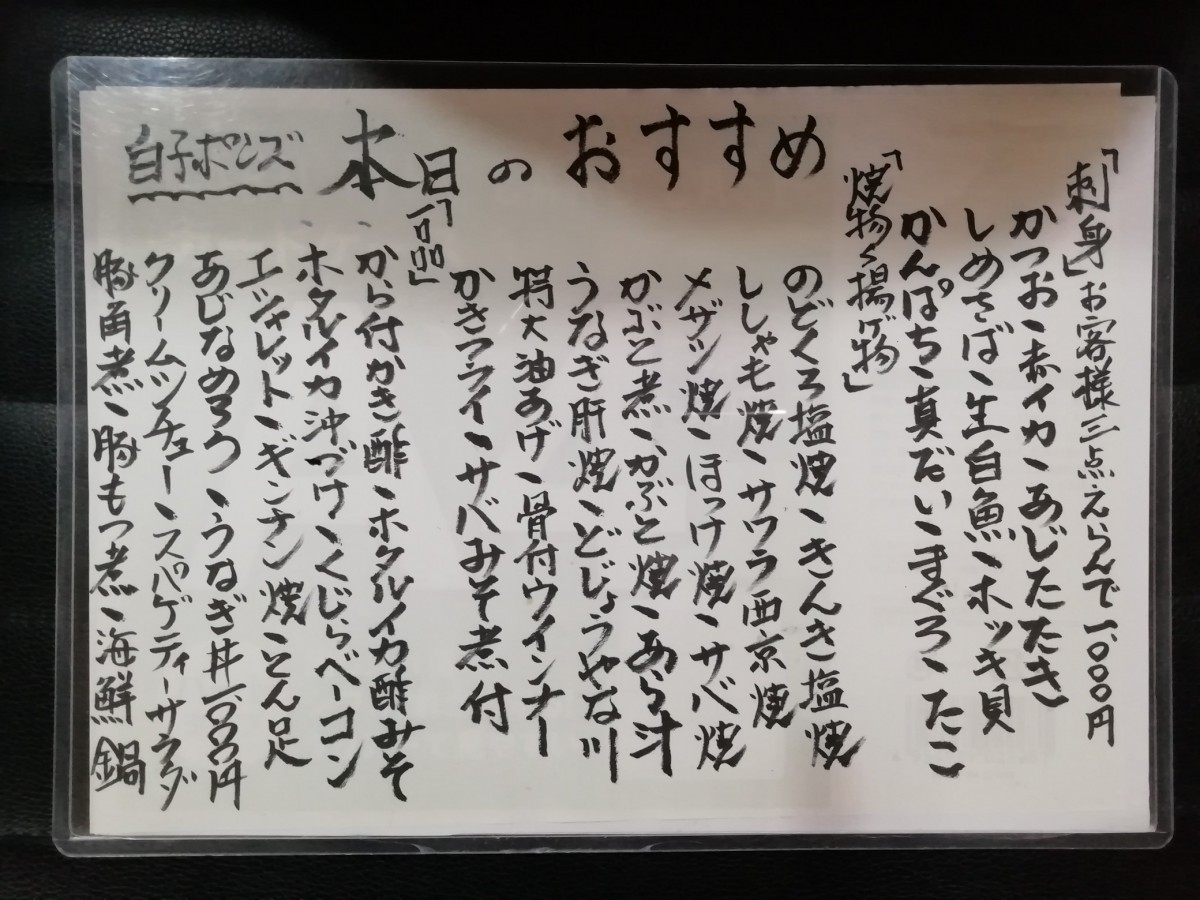 本日のおすすめ
白子ポンズ
「刺身」お客様三点えらんで一、〇〇〇円
かつお、赤イカ、あじたたき
しめさば、生白魚、ホッキ貝
かんぱち、真だい、まぐろ、たこ
「焼物、揚げ物」
のどくろ塩焼、きんき塩焼
ししゃも焼、サワラ西京焼
メザシ焼、ほっけ焼、サバ焼
かぶと煮、かぶと焼、あら汁
うなぎ肝焼、どじょうやな川
特大油あげ、骨付ウインナー
かきフライ、サバみそ煮付
「一品」
から付かき酢、ホタルイカ酢みそ
ホタルイカ沖づけ、くじらベーコン
エシャレット、ギンナン焼、とん足
あじなめろう、うなぎ丼一〇〇〇円
クリームシチュー、スパゲティーサラダ
豚角煮、豚もつ煮、海鮮鍋